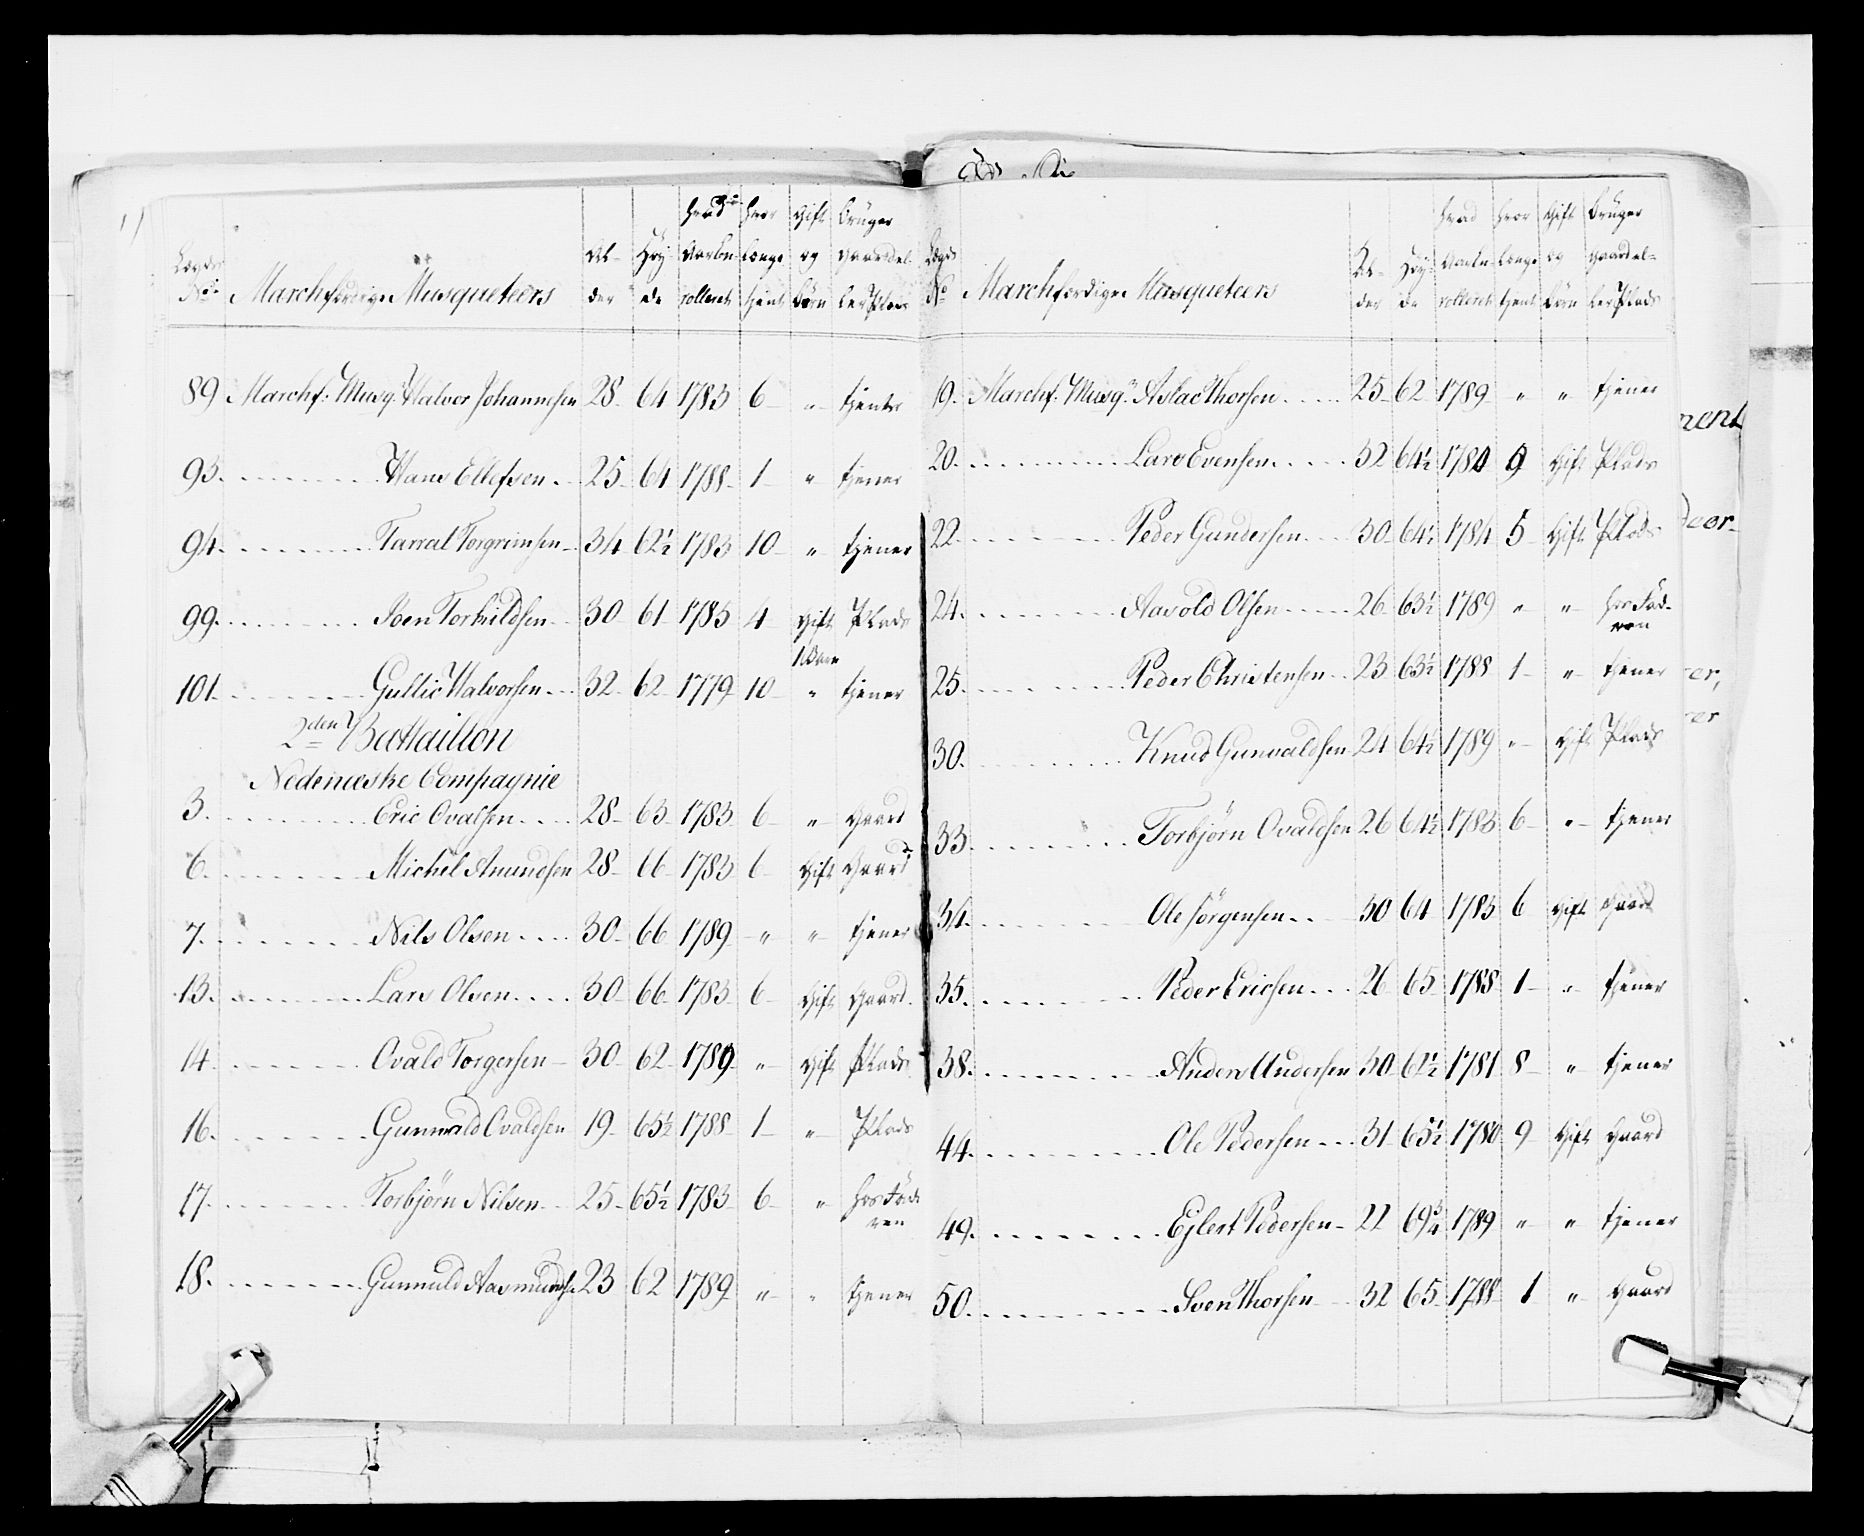 Lægds No. Marchfærdige Musqueteers Al- der Høy de hvad Aar bn rolleret hvor Længe tjent Gift og Børn Bruger Gaard el- ler Plads
89 Marchf. Musq. Halvor Johannesen 28 64 1783 6 " tjener
93. Hans Ellefsen 25 64 1788 1 " tjener
94. Tarral Torgrimsen 34 62½ 1783 10 " tjener
99. Joen Torkildsen 30 61 1785 4 Gift Plads
1 Barn
101. Gullic Halvorsen 32 62 1779 10 " tjener
2den Battaillon
Nedenæske Compagnie
3. Eric Ovalsen 28 63 1783 6 " Gaard
6. Michel Amundsen 28 66 1783 6 Gift Gaard
7. Nils Olsen 30 66 1789 " " tjener
13. Lars Olsen 30 66 1783 6 Gift Gaard.
14. Ovald Torgersen 30 62 1789 " Gift Plads
16. Gunnuld Ovaldsen 19 65½ 1788 1 " Plads
17. Torbjørn Nilsen 25 65½ 1783 6 " hos Fad
ren
18. Gunnuld Aasmunds. 23 62 1789 " " tjener
Lægds No Marchfærdige Musqueteers Al- der Høy- de hvad Aar bn rolleret hvor Længe tjent Gift og Børn Bruger Gaard el- ler Plads
19. Marchf. Musq. Aslac Thorsen 25 62 1789 " " tjener
20. Lars Evensen 32 64½ 1780 9 Gift Plads
22. Peder Gundersen 30 64½ 1784 5 Gift Plads
24. Aavold Olsen 26 63½ 1789 " " hos Fad-
ren
25. Peder Christensen 23 63½ 1788 1 " tjener
30. Knud Gunvaldsen 24 64½ 1789 " Gift Plads
33. Torbjørn Ovaldsen 26 64½ 1783 6 " tjener
34. Ole Jørgensen 30 64 1783 6 Gift Gaard
35. Peder Ericsen 26 65 1788 1 " tjener
38. Anders Andersen 30 62½ 1781 8 " tjener
44. Ole Pedersen 31 65½ 1780 9 Gift Gaard
49. Ejlert Pedersen 22 69¾ 1789 " " tjener
50. Sven Thorsen 32 65 1788 1 " Gaard